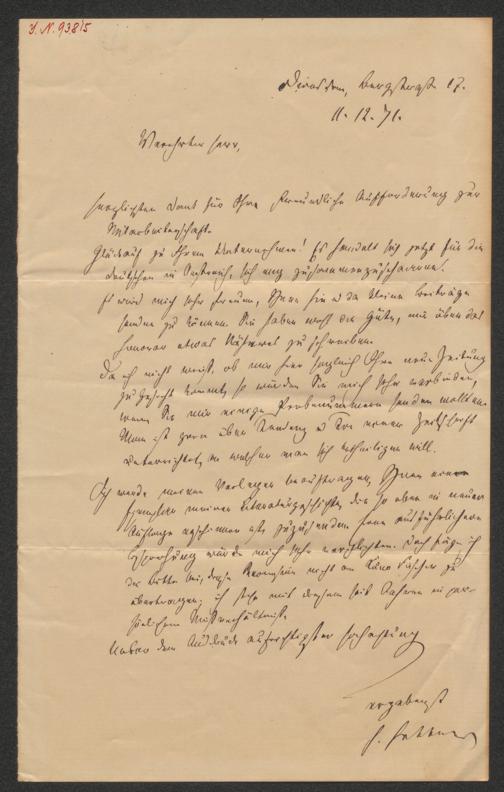 I. N. 93815
Dresden, Bergstraße 17.
11. 12. 71.
Verehrter Herr,
herzlichsten Dank für Ihre freundliche Aufforderung zur
Mitarbeiterschaft.
Glückauf zu Ihrem Unternehmen! Es handelt sich jetzt für die
Deutschen in Österreich, sich eng zusammenzuschaaren.
Es wird mich sehr freuen, Ihnen hie u da kleine Beiträge
senden zu können. Sie haben wohl die Güte, mir über das
Honorar etwas Näheres zu schreiben.
Da ich nicht weiß, ob mir hier sogleich Ihre neue Zeitung
zu Gesicht kommt, so würden Sie mich sehr verbinden,
wenn Sie mir einige Probenummern senden wollten.
Man ist gern über Tendenz u Ton einer Zeitschrift
unterrichtet, an welcher man sich betheiligen will.
Ich werde meinen Verleger beauftragen, Ihnen ein
Exemplar meiner Literaturgeschichte, die so eben in neuer
Auflage erschienen ist, zuzusenden. Eine ausführlichere
Besprechung würde mich sehr verpflichten. Doch füge ich
die Bitte bei, diese Recension nicht an Kuno Fischer zu
übertragen; ich stehe mit diesem seit Jahren in per-
sönlichem Mißverhältniß.
Unter dem Ausdruck aufrichtigster Hochachtung
ergebenst
H. Hettner